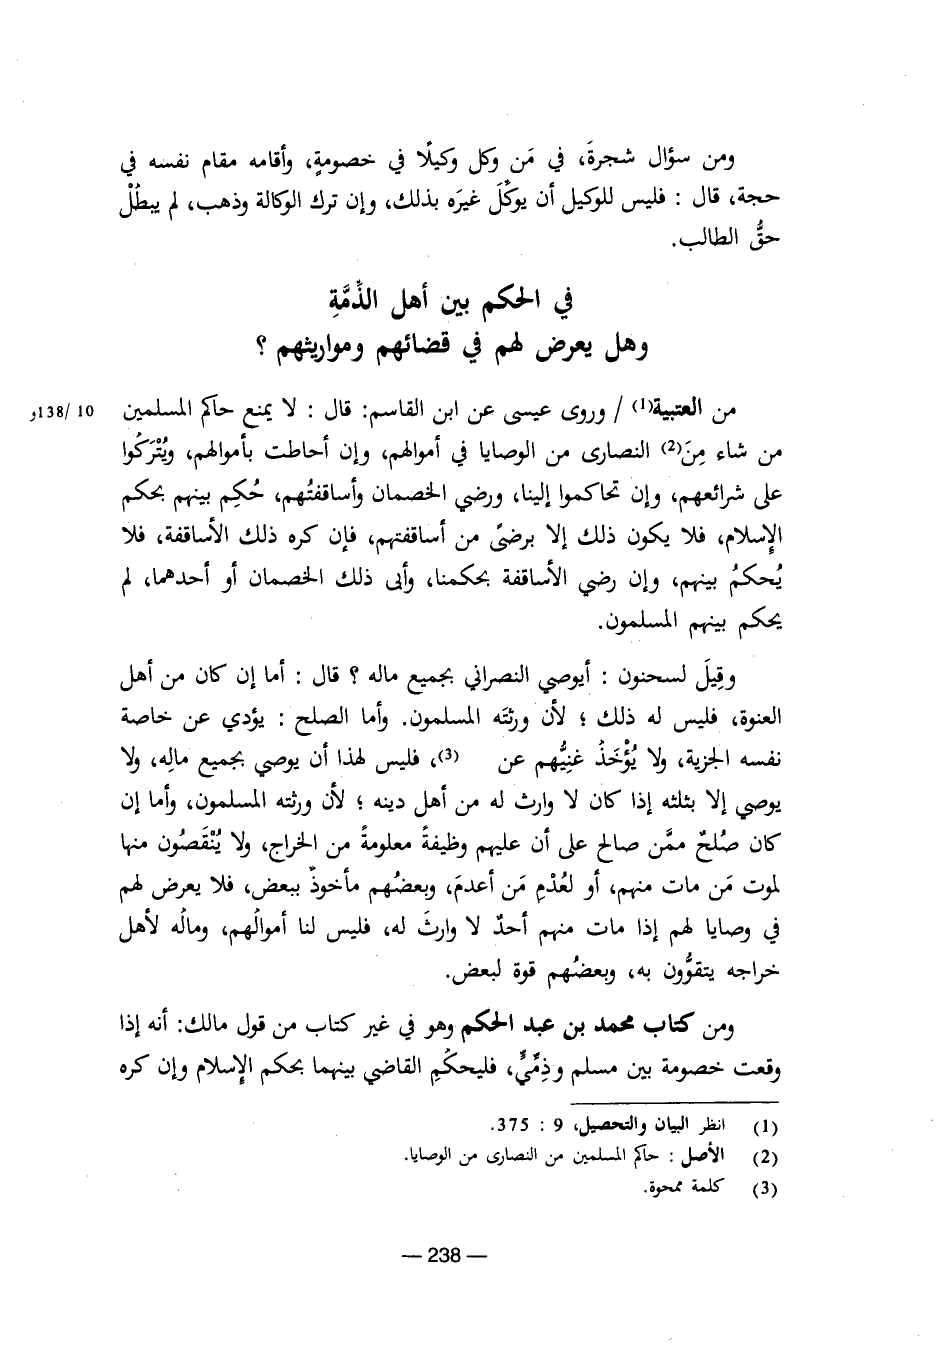 ومن سؤال شجرةَ، في مَن وكل وكيلًا في خصومةٍ، وأقامه مقام نفسه في
حجة، قال : فليس للوكيل أن يوكِّلَ غيرَه بذلك، وإن ترك الوكالة وذهب، لم يبطُلْ
حقُّ الطالب.
في الحكم بين أهل الذِّمَّةِ
وهل يعرض لهم في قضائهم ومواريثهم ؟
من العتبية(1) / وروى عيسى عن ابن القاسم: قال : لا يمنع حاكم المسلمين
10 /138و
من شاء مِنَ(2) النصارى من الوصايا في أموالهم، وإن أحاطت بأموالهم، ويُتْرَكُوا
على شرائعهم، وإن تحاكموا إلينا، ورضي الخصمان وأساقفتُهم، حُكِم بينهم بحكم
الإِسلام، فلا يكون ذلك إلا برضىً من أساقفتهم، فإن كره ذلك الأساقفة، فلا
يُحكمُ بينهم، وإن رضي الأساقفة بحكمنا، وأبى ذلك الخصمان أو أحدهما، لم
يحكم بينهم المسلمون.
وقِيلَ لسحنون : أيوصي النصراني بجميع ماله ؟ قال : أما إن كان من أهل
العنوة، فليس له ذلك ؛ لأن ورثتَه المسلمون. وأما الصلح : يؤدي عن خاصة
نفسه الجزية، ولا يُؤْخَذُ غنِيُّهم عن (3)، فليس لهذا أن يوصي بجميع مالِه، ولا
يوصي إلا بثلثه إذا كان لا وارث له من أهل دينه ؛ لأن ورثته المسلمون، وأما إن
كان صُلحٌ ممَّن صالح على أن عليهم وظيفةً معلومةً من الخراج، ولا يُنْقَصُون منها
لموت مَن مات منهم، أو لعُدْمِ مَن أعدمَ، وبعضُهم مأخوذٌ ببعض، فلا يعرض لهم
في وصايا لهم إذا مات منهم أحدٌ لا وارثَ له، فليس لنا أموالُهم، ومالُه لأهل
خراجه يتقوُّون به، وبعضُهم قوة لبعض.
ومن كتاب محمد بن عبد الحكم وهو في غير كتاب من قول مالك: أنه إذا
وقعت خصومة بين مسلم وذِمِّيٍّ، فليحكُمِ القاضي بينهما بحكم الإِسلام وإن كره
(1) انظر البيان والتحصيل، 9 : 375.
(2) الأصل : حاكم المسلمين من النصارى من الوصايا.
(3) كلمة ممحوة.
— 238 —